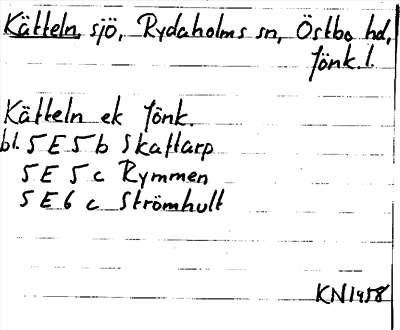 Kätteln, sjö, Rydaholms sn, Östbo hd,
Jönk. l.
Kätteln ek Jönk.
bl. 5 E 5 b Skaftarp
5 E 5 c Rymmen
5 E 6 c Strömhult
KN 1958